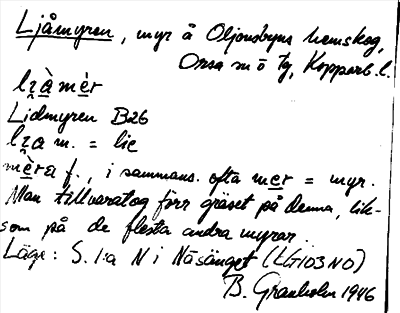 Ljåmyren, myr å Oljonsbyns hemskog,
Orsa sn ö tg, Kopparb. l.
lza mèr
Lidmyren B26
lza m. = lie
mèra f., i sammans. ofta mer = myr.
Man tillvaratog förr gräset på denna, lik-
som på de flesta andra myrar.
Läge: S. l:a N i Näsänget (LG103NO)
B. Granholm 1946